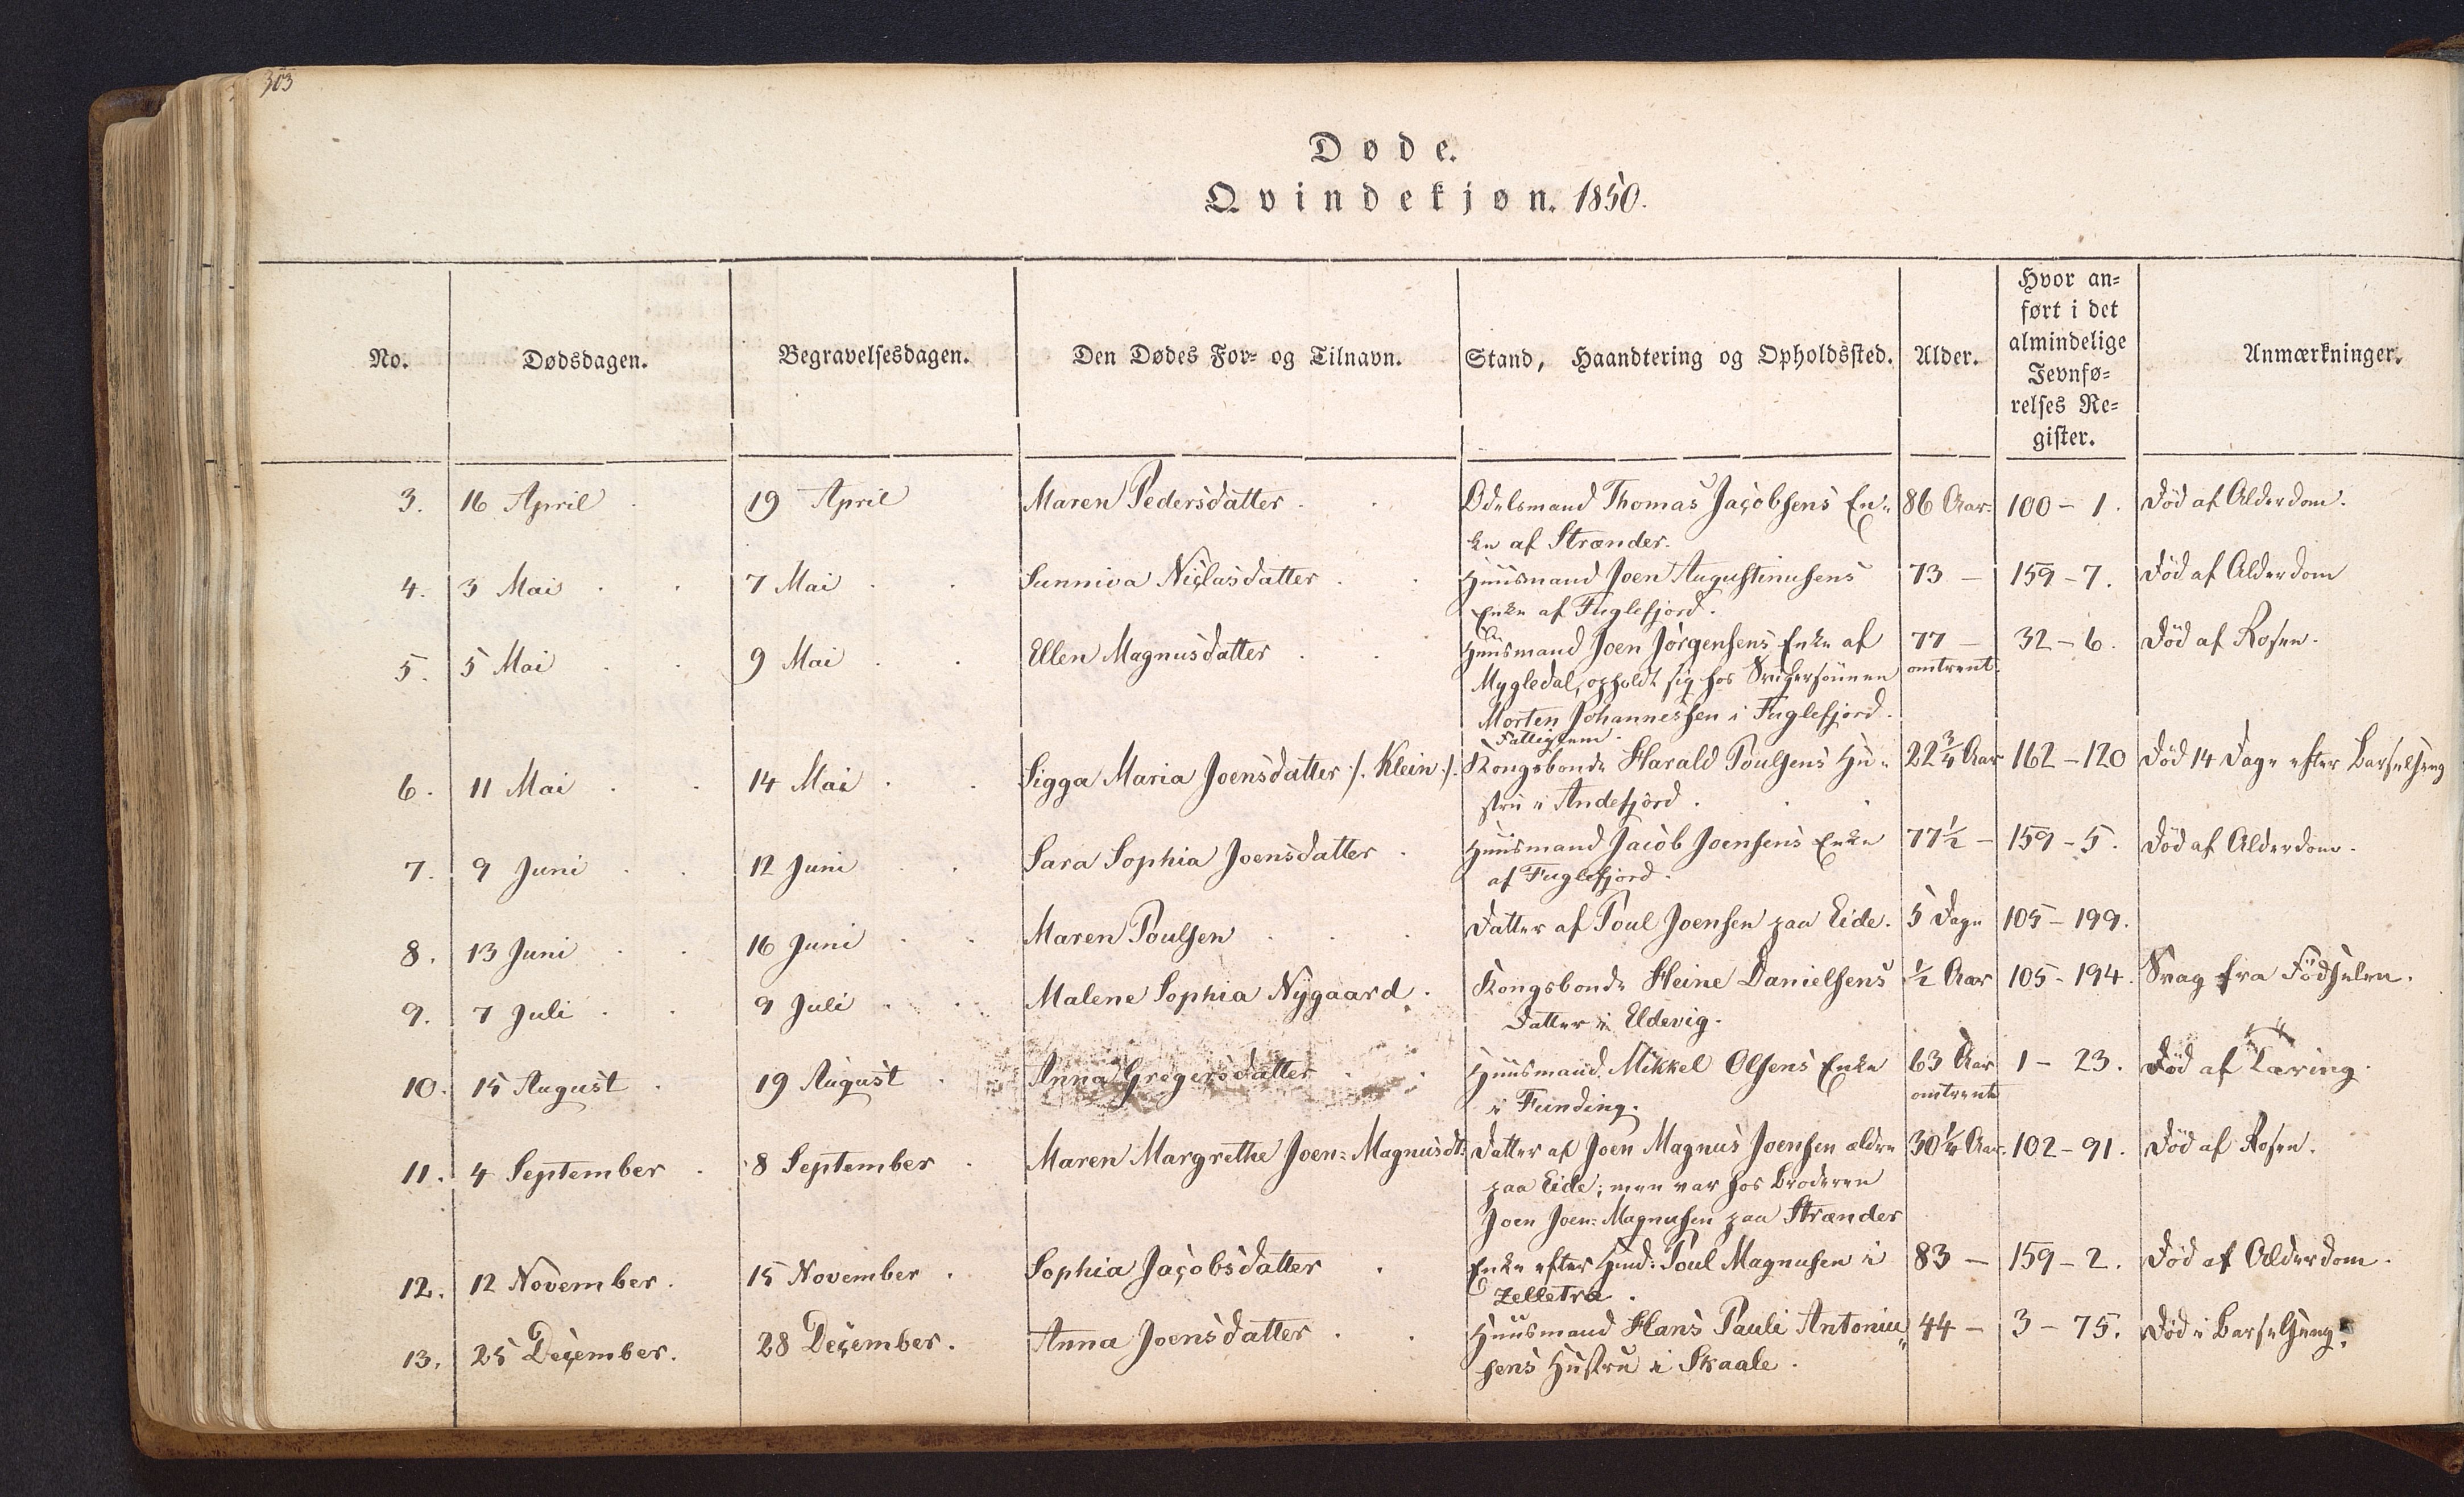 303
Døde.
Qvindekjøn. 1850.
No.
Dødsdagen.
Begravelsesdagen.
Den Dødes For- og Tilnavn.
Stand, Haandtering og Opholdssted.
Alder.
Hvor an=
ført i det
almindelige
Jevnfø=
relses Re=
gister.
Anmærkninger.
3. 16 April 19 April Maren Pedersdatter Odelsmand Thomas Jacobsens En= 86 Aar 100 - 1. Död af Alderdom.
ke af Strænder.
4. 3 Mai 7 Mai Sunniva Niclasdatter Huusmand Joen Augustinusens 73 - 159 - 7. Död af Alderdom
Enke af Fuglefjord.
5. 5 Mai 9 Mai Ellen Magnusdatter Huusmand Joen Jörgensens Enke af 77 - 32 - 6. Död af Rosen.
Mygledal, opholdt sig hos Svigersönnen omtrent.
Morten Johannessen i Fuglefjord.
Fattiglem.
6. 11 Mai 14 Mai Sigga Maria Joensdatter /. Klein ./. Kongsbonde Harald Poulsens Hu= 22 3/4 Aar 162 - 120 Död 14 Dage efter Barselseng
stru i Andefjord.
7. 9 Juni 12 Juni Sara Sophia Joensdatter Huusmand Jacob Joensens Enke 77 1/2 - 159 - 5. Död af Alderdom.
af Fuglefjord.
8. 13 Juni 16 Juni Maren Poulsen Datter af Poul Joensen paa Eide. 5 Dage 105 - 199.
9. 7 Juli 9 Juli Malene Sophia Nygaard. Kongsbonde Heine Danielsens 1/2 Aar 105 - 194. Svag fra Födselen.
Datter i Eldevig.
10. 15 August 19 August Anna Gregersdatter Huusmand Mikkel Olsens Enke 63 Aar 1 - 23. Död af Tæring.
i Funding. omtrent
11. 4 September 8 September Maren Margrethe Joen=Magnusdt. Datter af Joen Magnus Joensen ældre 30 1/4 Aar. 102 - 91. Död af Rosen.
paa Eide; men var hos Broderen
Joen Joen=Magnusen paa Strænder
12. 12 November. 15 November. Sophia Jacobsdatter Enke efter Hmd: Poul Magnusen i 83 - 159 - 2. Död af Alderdom.
Zelletræ.
13. 25 December. 28 December. Anna Joensdatter Huusmand Hans Pauli Antoniu= 44 - 3 - 75. Död i Barselseng.
sens Hustru i Skaale.